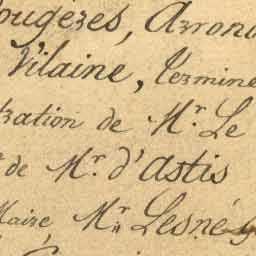 ougères, Arrond
Vilaine, termine
tration de M.r Le
de M.r d'Astis
Maire, M.r Lesné